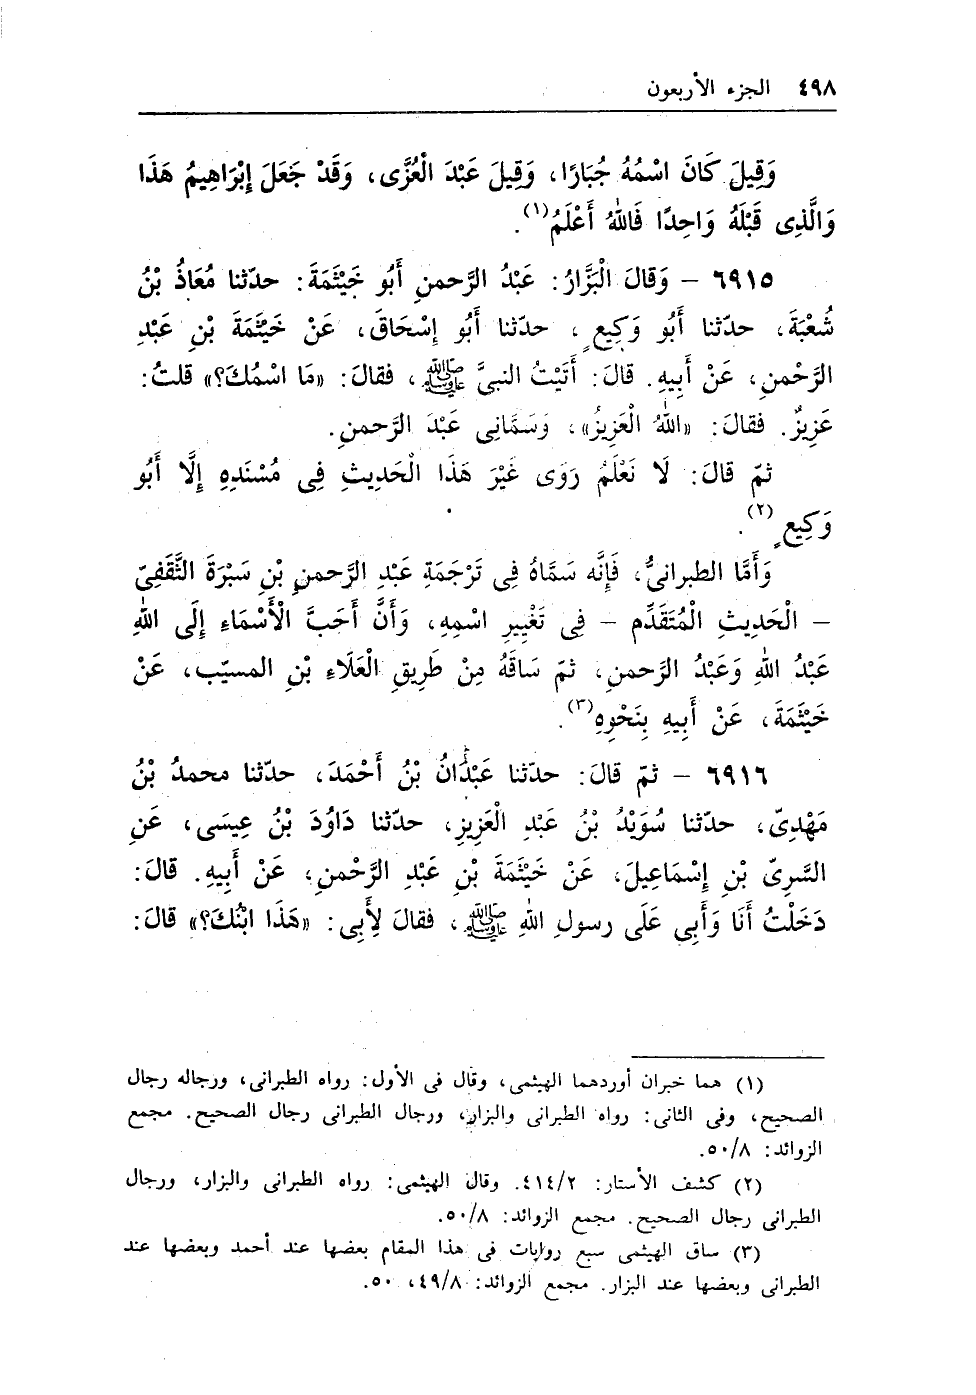 ٤٩٨ الجزء الأربعون
وَقِيلَ كَانَ اسْمُهُ جُبَارًا، وَقِيلَ عَبْدَ الْعُزَّى، وَقَدْ جَعَلَ إِبْرَاهِيمُ هَذَا
وَالَّذِى قَبْلَهُ وَاحِدًا فَاللهُ أَعْلَمُ(١).
٦٩١٥ - وَقَالَ الْبَزَّارُ: عَبْدُ الرَّحمنِ أَبُو خَيْثَمَةَ: حدّثنا مُعَاذُ بْنُ
شُعْبَةَ، حدّثنا أَبُو وَكِيعٍ، حدّثنا أَبُو إِسْحَاقَ، عَنْ خَيْثَمَةَ بْنِ عَبْدِ
الرَّحْمنِ، عَنْ أَبِيهِ. قَالَ: أَتَيْتُ النبىَّ ﷺ، فقالَ: «مَا اسْمُكَ؟» قلتُ:
عَزِيزٌ. فقالَ: «اللهُ الْعَزِيزُ»، وَسَمَّانِى عَبْدَ الرَّحمنِ.
ثمّ قالَ: لَا نَعْلَمُ رَوَى غَيْرَ هَذَا الْحَدِيثِ فِى مُسْنَدِهِ إِلَّا أَبُو
وَكِيعٍ(٢).
وَأَمَّا الطبرانىُّ، فَإِنَّه سَمَّاهُ فِى تَرْجَمَةِ عَبْدِ الرَّحمنِ بْنِ سَبْرَةَ الثَّقَفِىّ
- الْحَدِيثِ الْمُتَقَدِّم - فِى تَغْيِيرِ اسْمِهِ، وَأَنَّ أَحَبَّ الْأَسْمَاءِ إِلَى اللهِ
عَبْدُ اللهِ وَعَبْدُ الرَّحمنِ، ثمّ سَاقَهُ مِنْ طَرِيقِ الْعَلَاءِ بْنِ المسيّب، عَنْ
خَيْثَمَةَ، عَنْ أَبِيهِ بِنَحْوِهِ(٣).
٦٩١٦ - ثمّ قالَ: حدّثنا عَبْدَانُ بْنُ أَحْمَدَ، حدّثنا محمدُ بْنُ
مَهْدِىّ، حدّثنا سُوَيْدُ بْنُ عَبْدِ الْعَزِيزِ، حدّثنا دَاوُدَ بْنُ عِيسَى، عَنِ
السَّرِىّ بْنِ إِسْمَاعِيلَ، عَنْ خَيْثَمَةَ بْنِ عَبْدِ الرَّحْمنِ، عَنْ أَبِيهِ. قَالَ:
دَخَلْتُ أَنَا وَأَبِى عَلَى رسولِ اللهِ ﷺ، فقالَ لِأَبِى: «هَذَا ابْنُكَ؟» قَالَ:
(١) هما خبران أوردهما الهيثمى، وقال فى الأول: رواه الطبرانى، ورجاله رجال
الصحيح، وفى الثانى: رواه الطبرانى والبزار، ورجال الطبرانى رجال الصحيح. مجمع
الزوائد: ٥٠/٨.
(٢) كشف الأستار: ٤١٤/٢. وقال الهيثمى: رواه الطبرانى والبزار، ورجال
الطبرانى رجال الصحيح. مجمع الزوائد: ٥٠/٨.
(٣) ساق الهيثمى سبع روايات فى هذا المقام بعضها عند أحمد وبعضها عند
الطبرانى وبعضها عند البزار. مجمع الزوائد: ٤٩/٨، ٥٠.